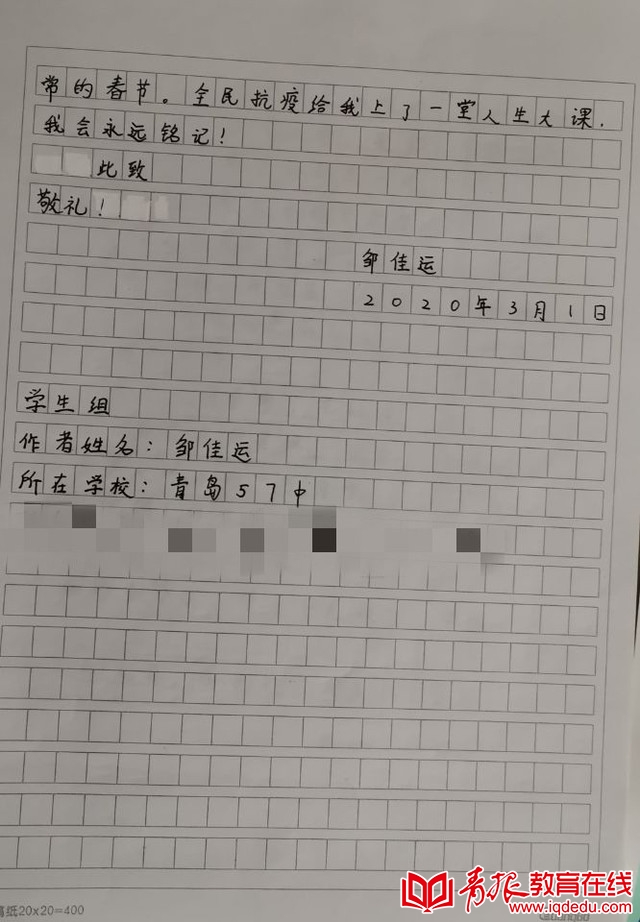 常的春节。全民抗疫给我上了一堂人生大课.
我会永远铭记!
此致
敬礼!
邹佳运
2020年3月1日
学生组
作者姓名:邹佳运
所在学校:青岛57中
稿纸20x20=400
青报教育在线
www.iqdedu.com